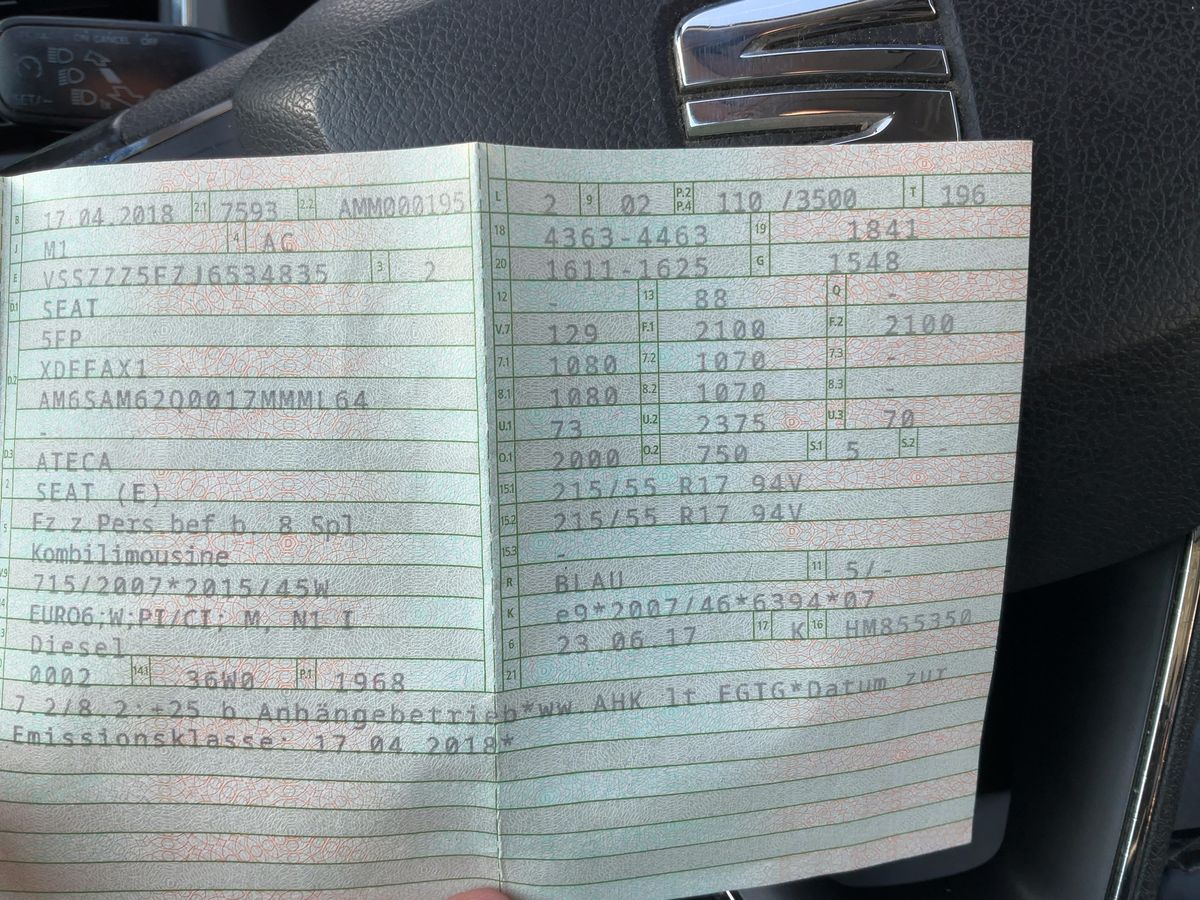 B 17.04.2018 2.1 7593 2.2 AMM000195
J M1 4 AC
E VSSZZZ5FZJ6534835 3 2
D.1 SEAT
5FP
D.2 XDFFAX1
AM6SAM62Q0017MMML64
-
D.3 ATECA
2 SEAT (E)
5 Fz.z.Pers.bef.b. 8 Spl
Kombilimousine
V.9 715/2007*2015/45W
14 EURO6;W;PI/CI; M, N1 I
P.3 Diesel
10 0002 14.1 36W0 P.1 1968
L 2 9 02 P.2 P.4 110 /3500 T 196
18 4363-4463 19 1841
20 1611-1625 G 1548
12 - 13 88 Q -
V.7 129 F.1 2100 F.2 2100
7.1 1080 7.2 1070 7.3 -
8.1 1080 8.2 1070 8.3 -
U.1 73 U.2 2375 U.3 70
O.1 2000 O.2 750 S.1 5 S.2 -
15.1 215/55 R17 94V
15.2 215/55 R17 94V
15.3 -
R BLAU 11 5/-
K e9*2007/46*6394*07
6 23.06.17 17 K 16 HM855350
21
7.2/8.2:+25 b.Anhängebetrieb*ww.AHK lt.EGTG*Datum zur
Emissionsklasse: 17.04.2018*